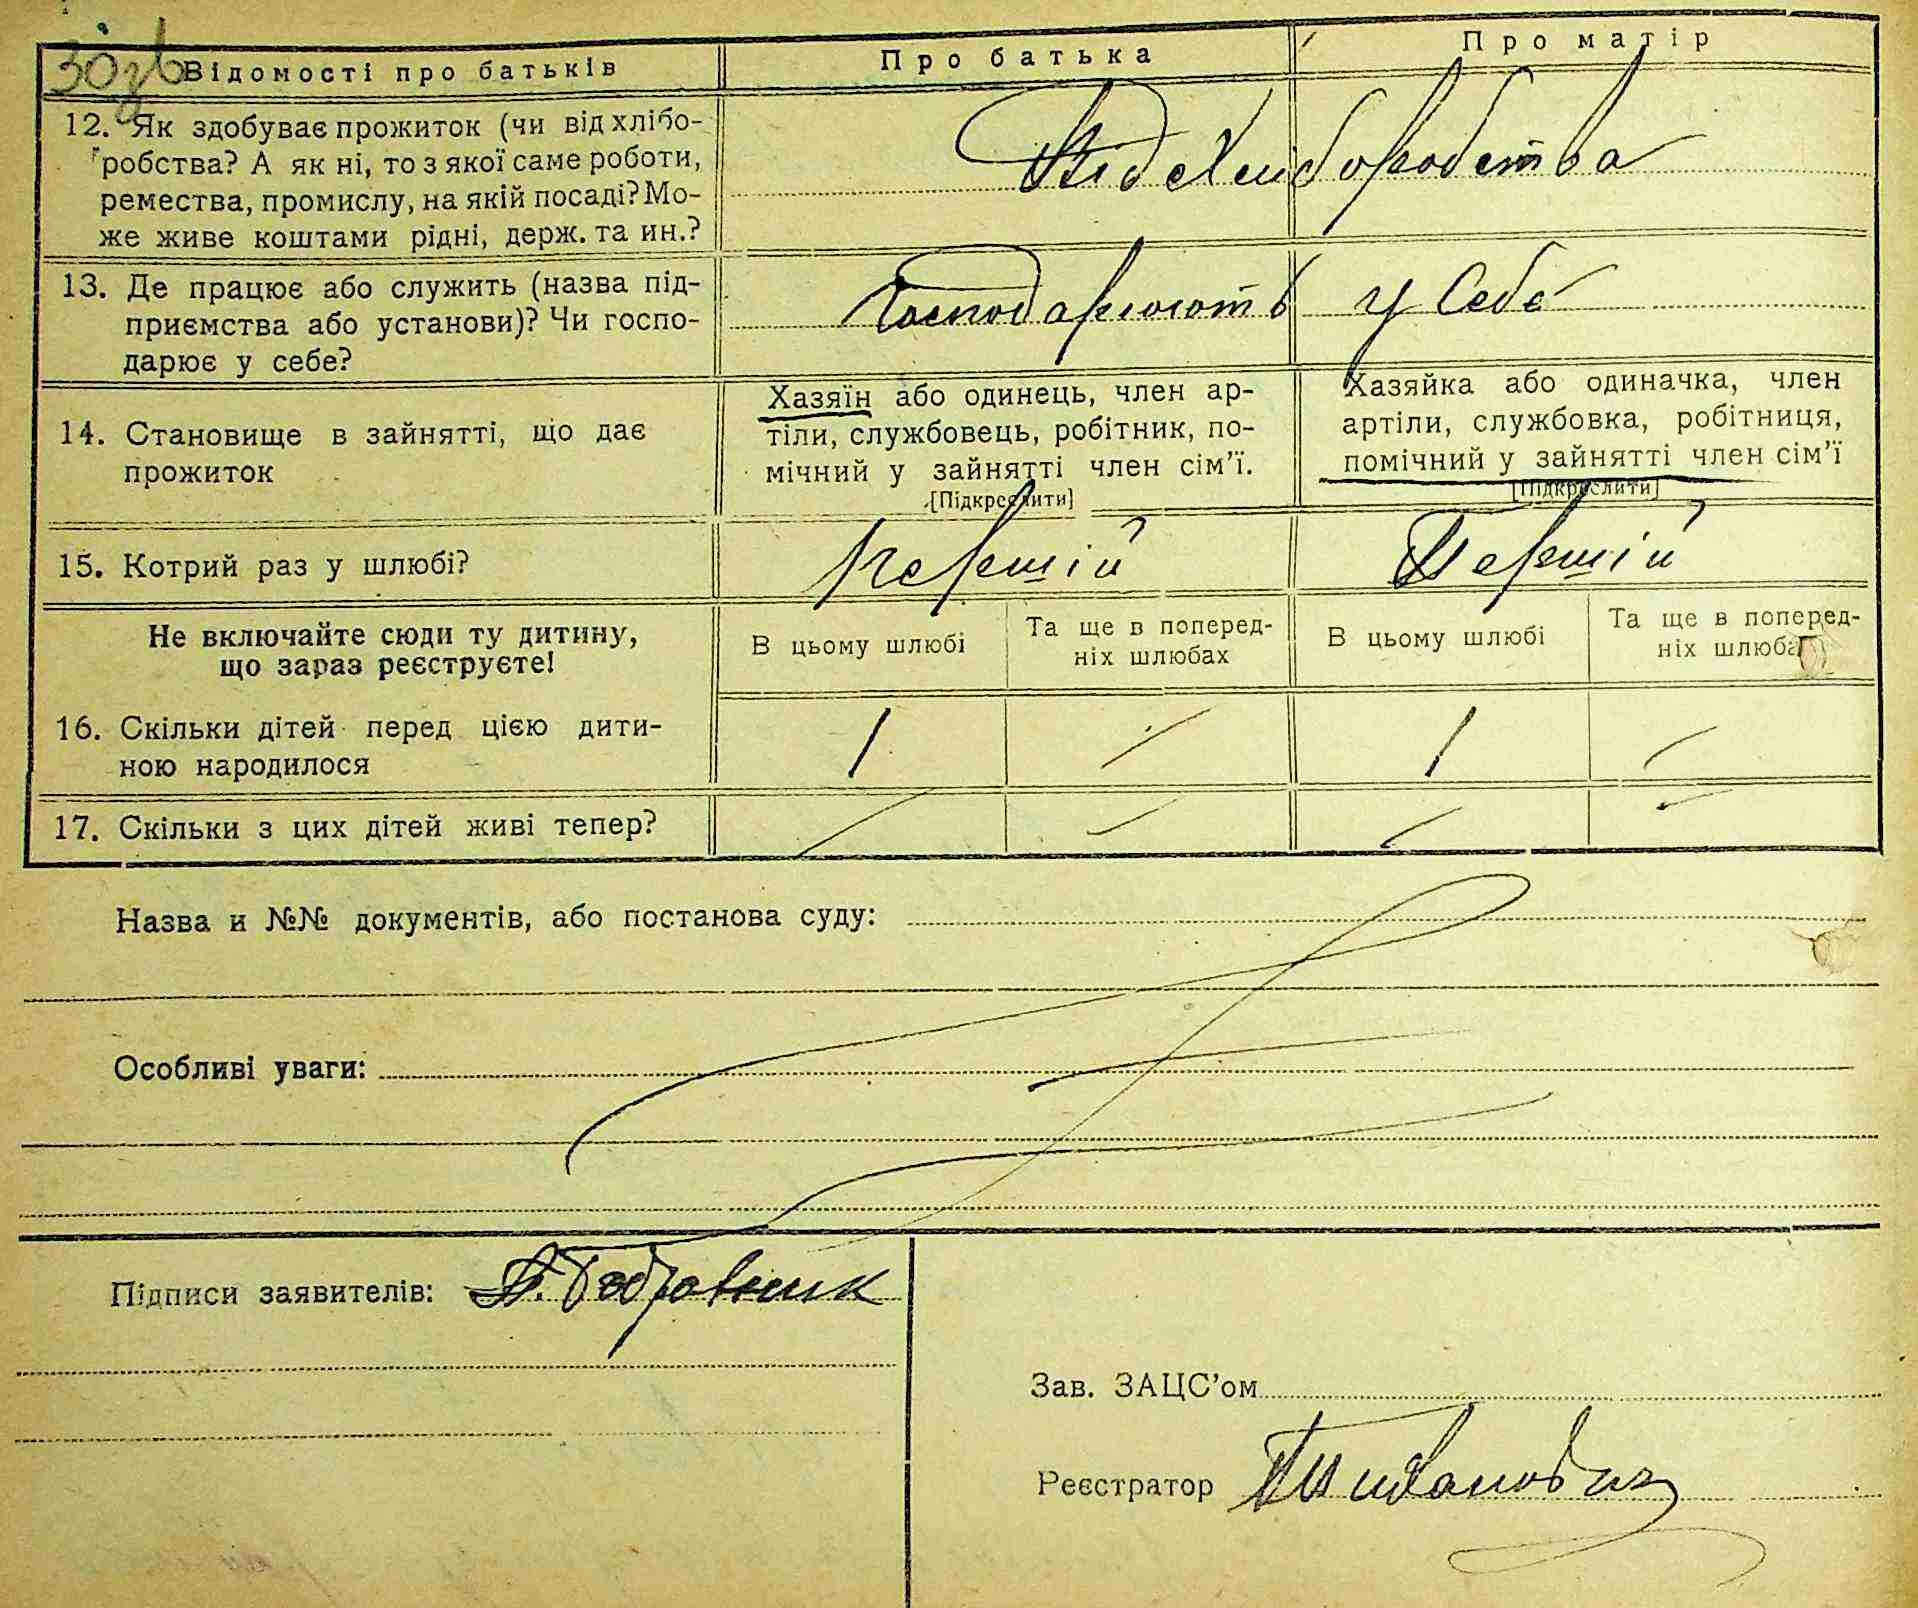 30зв
Відомості про батьків
Про батька
Про матір
12. Як здобуває прожиток (чи від хлібо-
робства? А як ні, то з якої саме роботи,
ремества, промислу, на якій посаді? Мо-
же живе коштами рідні, держ. та ин.?
Від хліборобства
13. Де працює або служить (назва під-
приємства або установи)? Чи госпо-
дарює у себе?
Господарюють у себе
14. Становище в зайнятті, що дає
прожиток
Хазяїн або одинець, член ар-
тіли, службовець, робітник, по-
мічний у зайнятті член сім'ї.
[Підкреслити]
Хазяйка або одиначка, член
артіли, службовка, робітниця,
помічний у зайнятті член сім'ї
[Підкреслити]
15. Котрий раз у шлюбі?
Першій
Першій
Не включайте сюди ту дитину,
що зараз реєструєте!
В цьому шлюбі
Та ще в поперед-
ніх шлюбах
В цьому шлюбі
Та ще в поперед-
ніх шлюба
16. Скільки дітей перед цією дити-
ною народилося
1
1
17. Скільки з цих дітей живі тепер?
Назва и №№ документів, або постанова суду:
Особливі уваги:
Підписи заявителів:
Зав. ЗАЦС'ом
Реєстратор